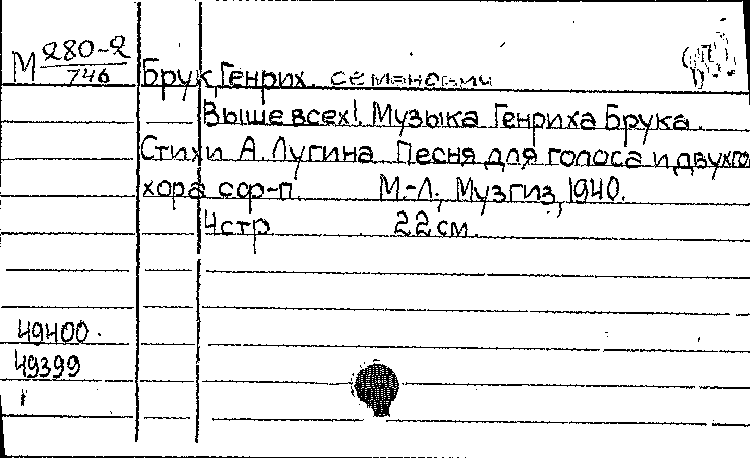 М 280-2
746
Брук, Генрих.
Выше всех! Музыка Генриха Брука.
Стихи А. Лугина. Песня для голоса и двухго
хора с ор-п. М.-Л., Музгиз, 1940.
4 стр. 22 см.
49400.
49399